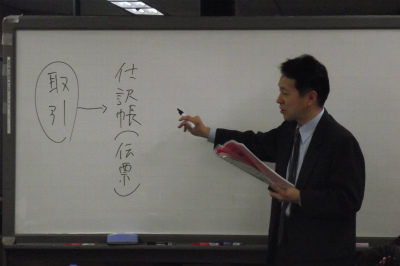 取引
仕訳帳(伝票)